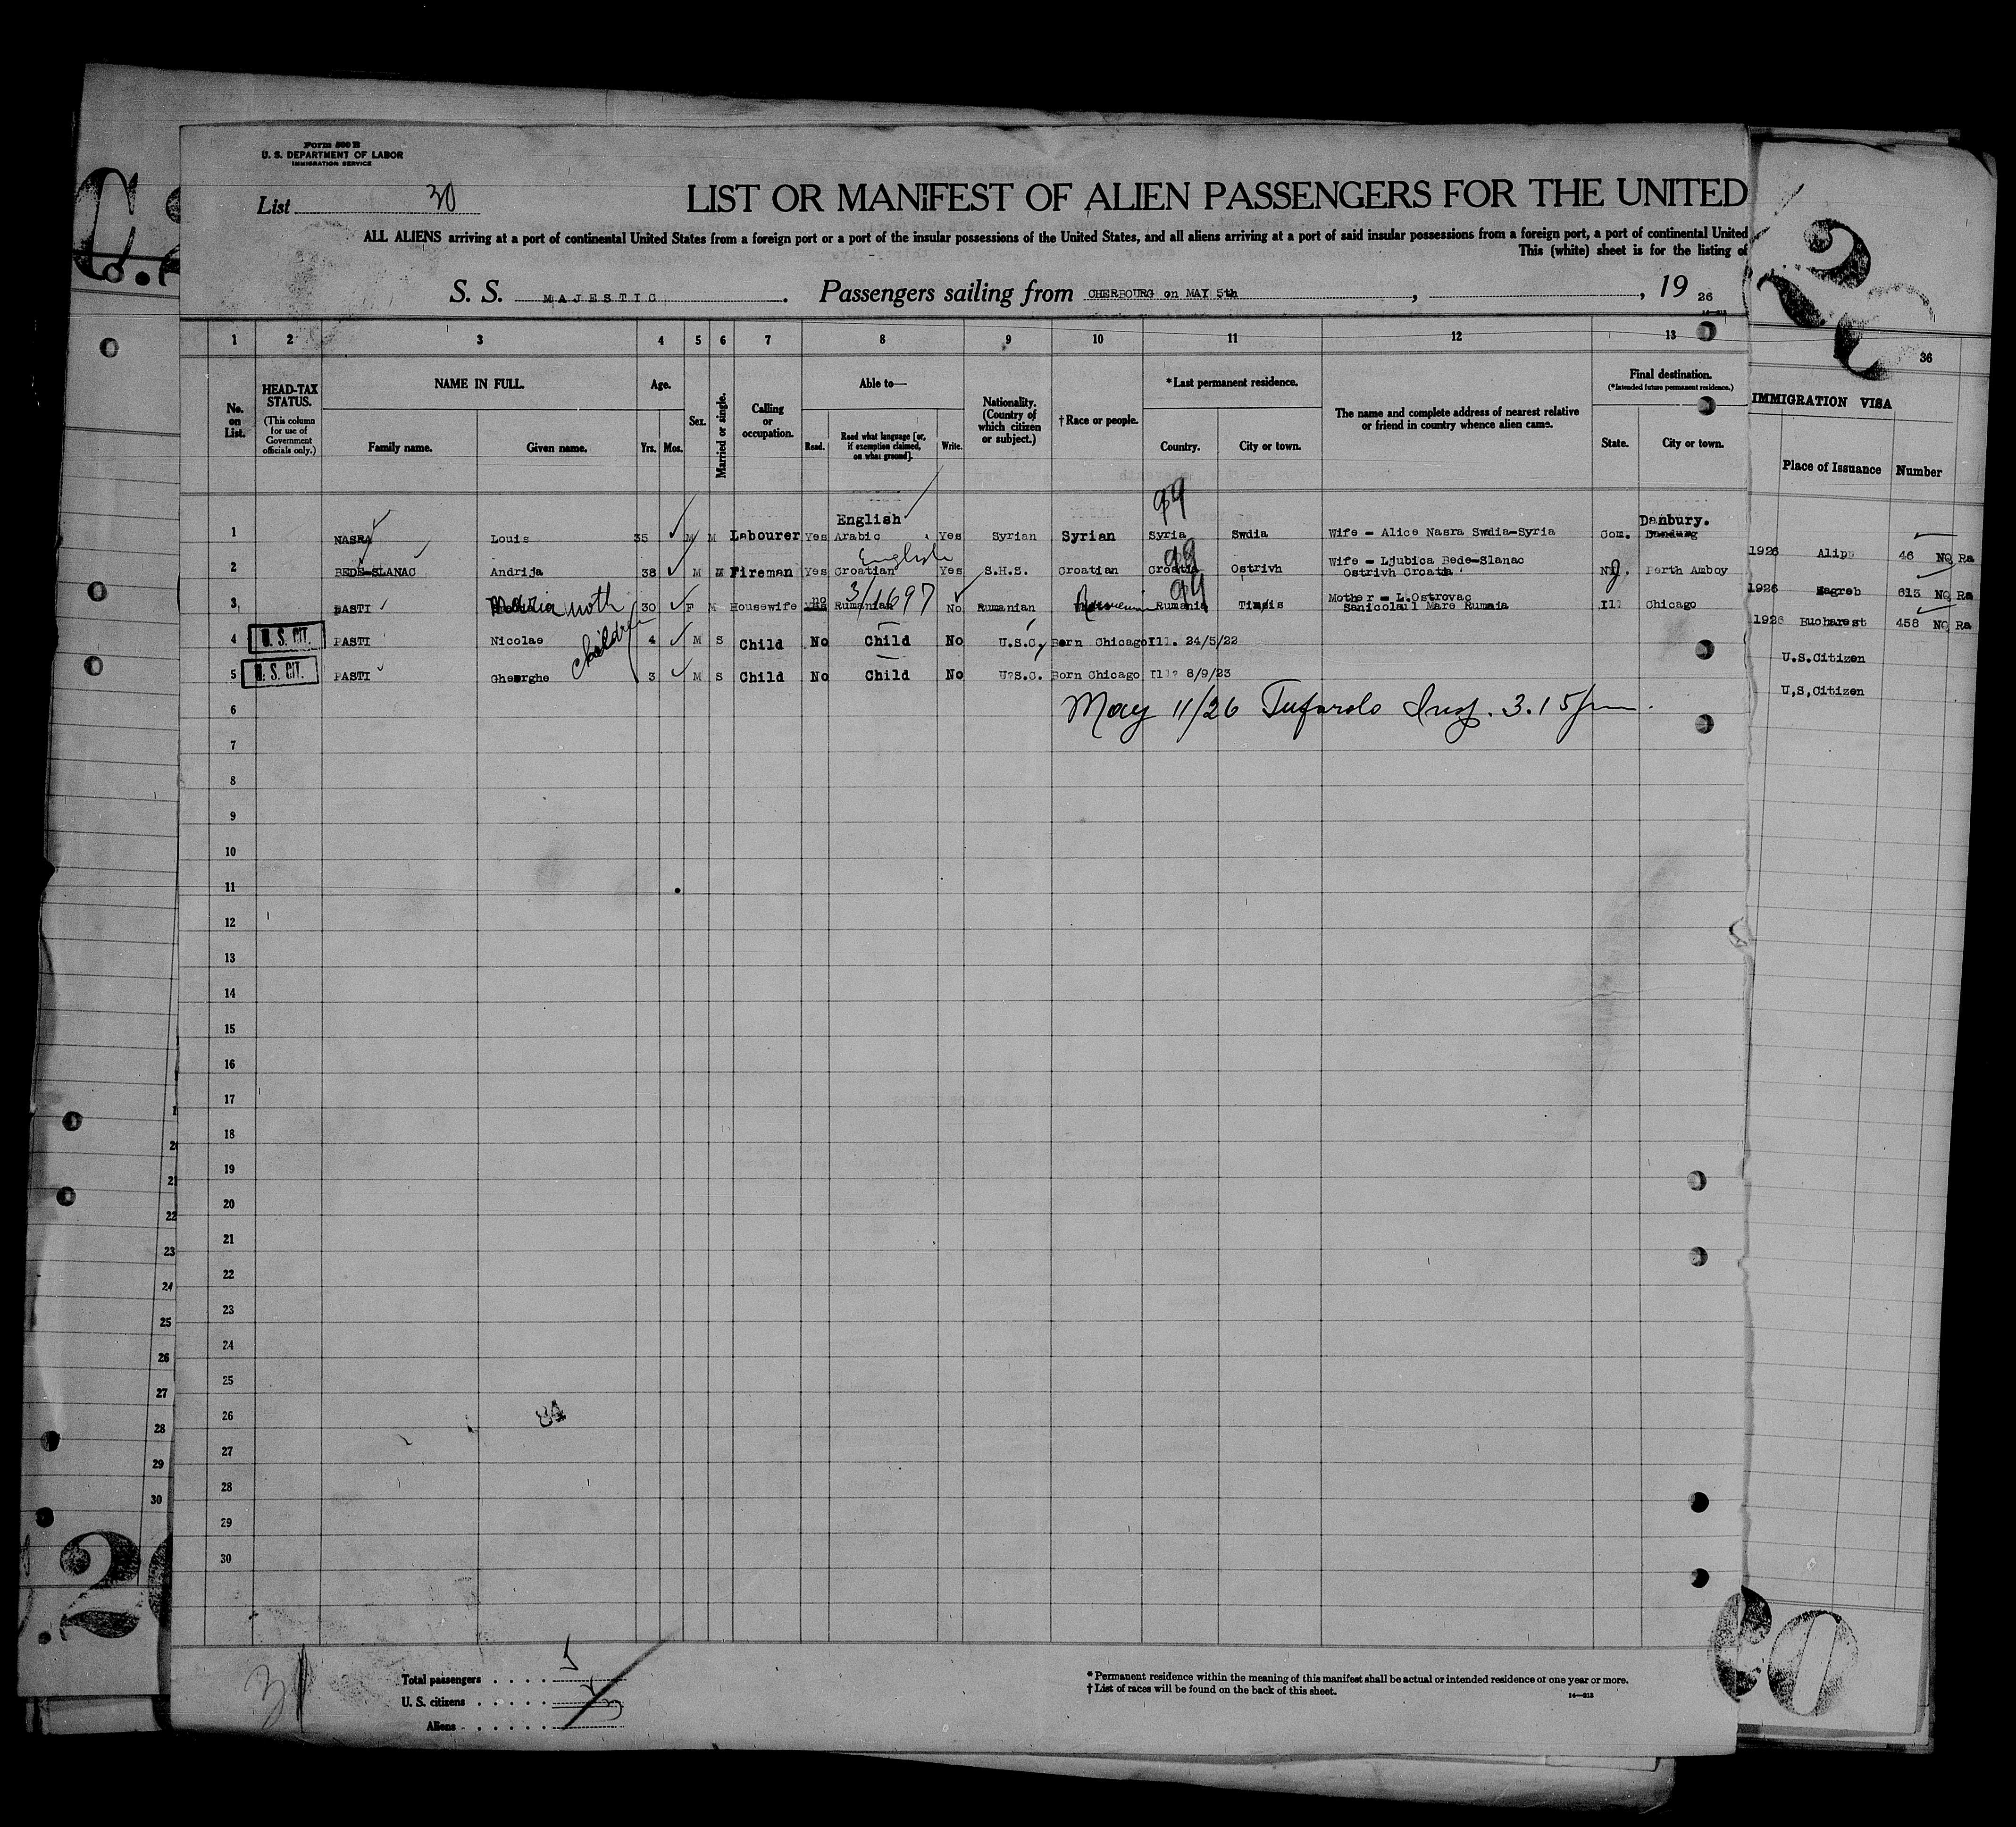 Form 500 B
U. S. DEPARTMENT OF LABOR
IMMIGRATION SERVICE
List 30
LIST OR MANIFEST OF ALIEN PASSENGERS FOR THE UNITED
ALL ALIENS arriving at a port of continental United States from a foreign port or a port of the insular possessions of the United States, and all aliens arriving at a port of said insular possessions from a foreign port, a port of continental United
This (white) sheet is for the listing of
S. S. MAJESTIC. Passengers sailing from CHERBOURG on MAY 5th, , 19 26
1 2 3 4 5 6 7 8 9 10 11 12 13 36
No. on List. HEAD-TAX STATUS. (This column for use of Government officials only.) NAME IN FULL. Family name. Given name. Age. Yrs. Mos. Sex. Married or single. Calling or occupation. Able to— Read. Read what language [or, if exemption claimed, on what ground]. Write. Nationality. (Country of which citizen or subject.) †Race or people. *Last permanent residence. Country. City or town. The name and complete address of nearest relative or friend in country whence alien came. Final destination. (*Intended future permanent residence.) State. City or town. IMMIGRATION VISA Place of Issuance Number
99
English Danbury.
1 NASRA Louis 35 M M Labourer Yes Arabic Yes Syrian Syrian Syria Swdia Wife - Alice Nasra Swdia-Syria Con.
English 99 Wife - Ljubica Bede-Slanac
2 BEDE-SLANAC Andrija 38 M M Fireman Yes Croatian Yes S.H.S. Croatian Croatia Ostrivh Ostrivh Croatia NJ. Perth Amboy
1926 46 NQ Ra
no 3/1697 99 Mother - L.Ostrovac
3 PASTI Maria moth 30 F M Housewife Rumanian No Rumanian Rumania Timsis Sanicolaul Mare Ill Chicago
1926 Zagreb 613 NQ Ra
children
U. S. CIT. 4 PASTI Nicolae 4 M S Child No Child No U.S.C. Born Chicago Ill. 24/5/22
1926 Bucharest 458 NQ Ra
U. S. CIT. 5 PASTI Gheorghe 3 M S Child No Child No U.S.C. Born Chicago Ill. 8/9/23
U.S.Citizen
U,S,Citizen
6 May 11/26 Insp. 3.15 pm.
7
8
9
10
11
12
13
14
15
16
17
18
19
20
21
22
23
24
25
26 84
27
28
29
30
20
21
22
23
24
25
26
27
28
29
30
Total passengers . . . . 5
U. S. citizens . . . . . 2
Aliens . . . . . . 3
* Permanent residence within the meaning of this manifest shall be actual or intended residence of one year or more.
† List of races will be found on the back of this sheet.
14—213